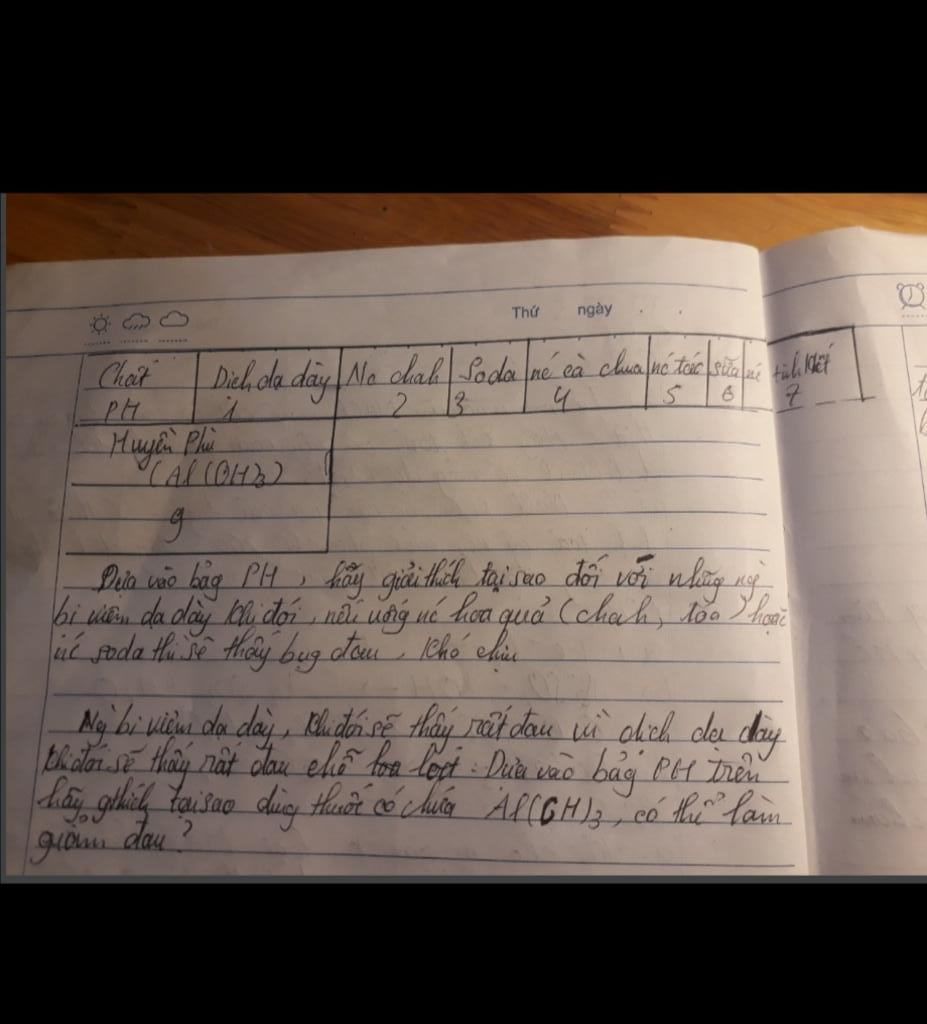 Thứ ngày
Chất Dịch dạ dày Nc chah Soda nc cà chua nc táo sữa nc tinh khiết
PH 1 2 3 4 5 6 7
Huyền Phù
(Al(OH)3)
9
Dựa vào bảg PH, hãy giải thích tại sao đối với nhữg ng
bị viêm dạ dày khi đói, nếu uốg nc hoa quả (chah, táo) hoặc
nc soda thì sẽ thấy bụg đau, khó chịu
Ng bị viêm dạ dày, khi đói sẽ thấy rất đau vì dịch dạ dày
khi đói sẽ thấy rất đau chỗ loét. Dựa vào bảg PH trên
hãy gthích tại sao dùg thuốc có chứa Al(OH)3, có thể làm
giảm đau?